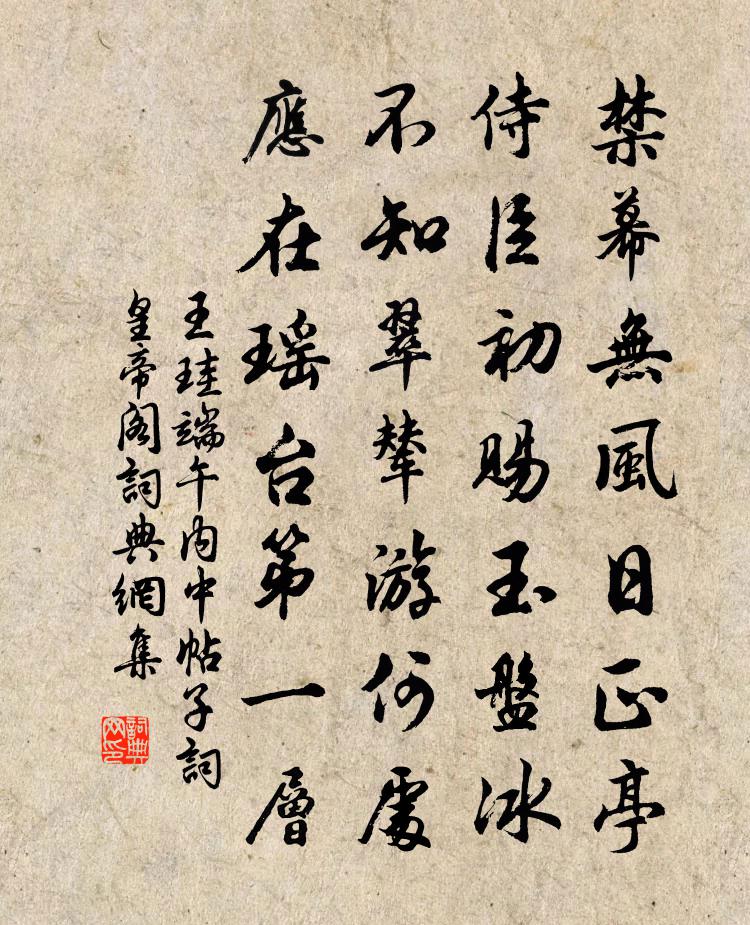 禁幕無風日正亭
侍臣初賜玉盤冰
不知翠輦游何處
應在瑶台第一層
王珪端午内中帖子詞
皇帝阁詞典網集
詞典网印